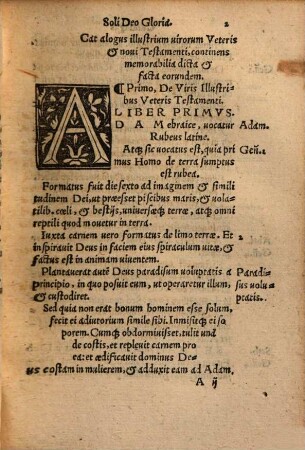 Soli Deo Gloria. 2
Catalogus illustrium uirorum Veteris
& noui Testamenti, continens
memorabilia dicta &
facta eorundem.
¶Primo, De Viris Illustri
bus Veteris Testamenti.
LIBER PRIMVS.
ADAM ebraice, uocatur Adam.
Rubeus latine.
Atq; sic uocatus est, quia pri Geñ.
mus Homo de terra sumptus
est rubea.
Formatus fuit die sexto ad imaginem & simili
tudinem Dei, ut præesset piscibus maris, & uola-
tilib. cœli, & bestijs, uniuersæq; terræ, atq; omni
reptili quod mouetur in terra.
Iuxta carnem uero formatus de limo terræ. Et
inspirauit Deus in faciem eius spiraculum uitæ, &
factus est in animam uiuentem.
Plantauerat autẽ Deus paradisum uoluptatis a Paradi-
principio, in quo posuit eum, ut operaretur illum, sus uolu-
& custodiret. ptatis.
Sed quia non erat bonum hominem esse solum,
fecit ei adiutorium simile sibi. Inmisitq; ei so
porem. Cumq; obdormiuisset, tulit und
de costis, et repleuit carnem pro
ea: et ædificauit dominus De-
us costam in mulierem, & adduxit eam ad Adam.
A ij